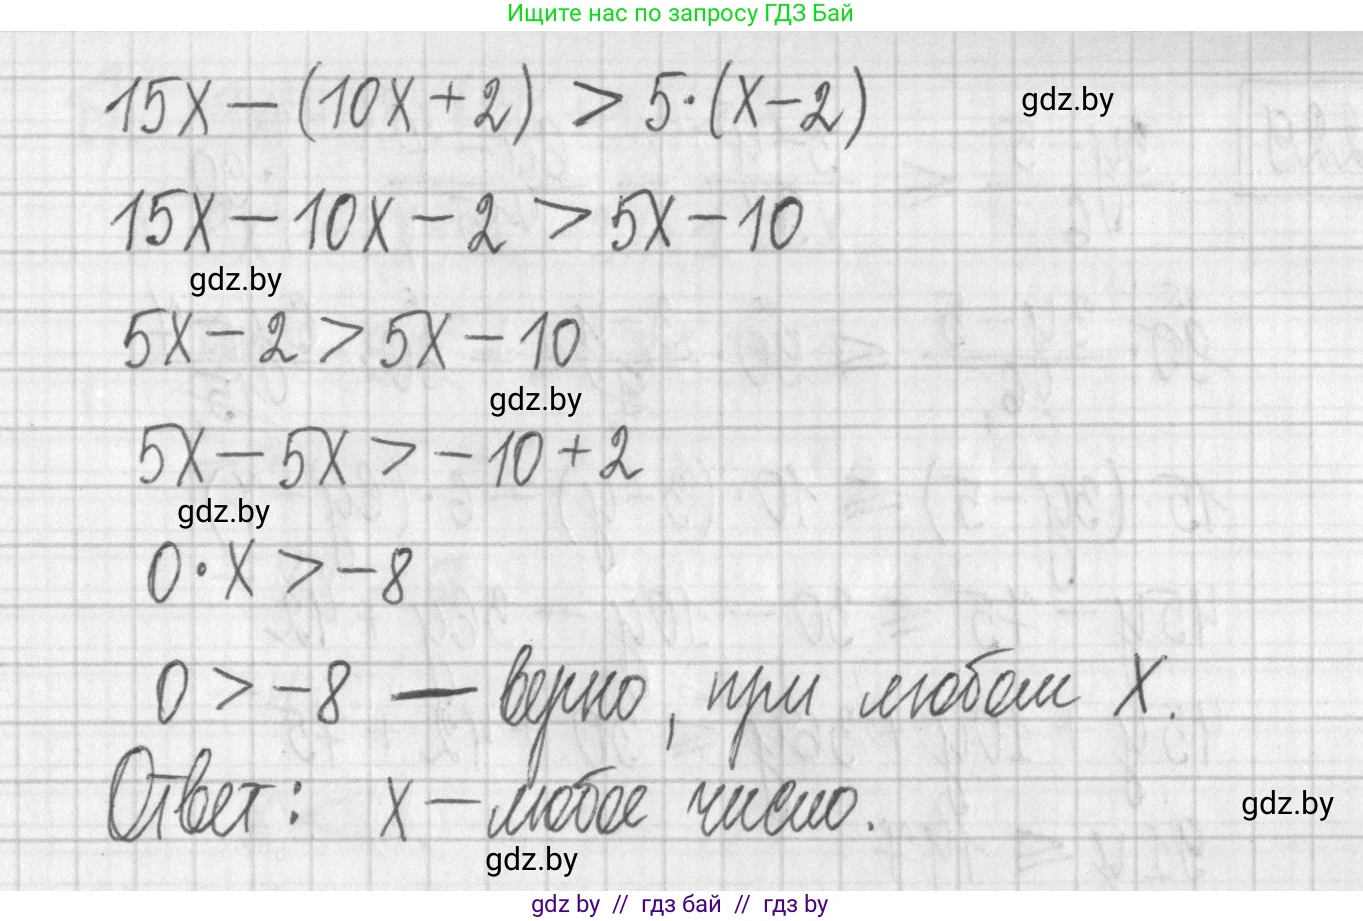 Ищите нас по запросу ГДЗ Бай
15x - (10x + 2) > 5·(x - 2)
gdz.by
15x - 10x - 2 > 5x - 10
gdz.by
5x - 2 > 5x - 10
gdz.by
5x - 5x > -10 + 2
gdz.by
0·x > -8
0 > -8 — верно, при любом x.
Ответ: x - любое число.
gdz.by
gdz.by
gdz by // гдз бай // гдз by